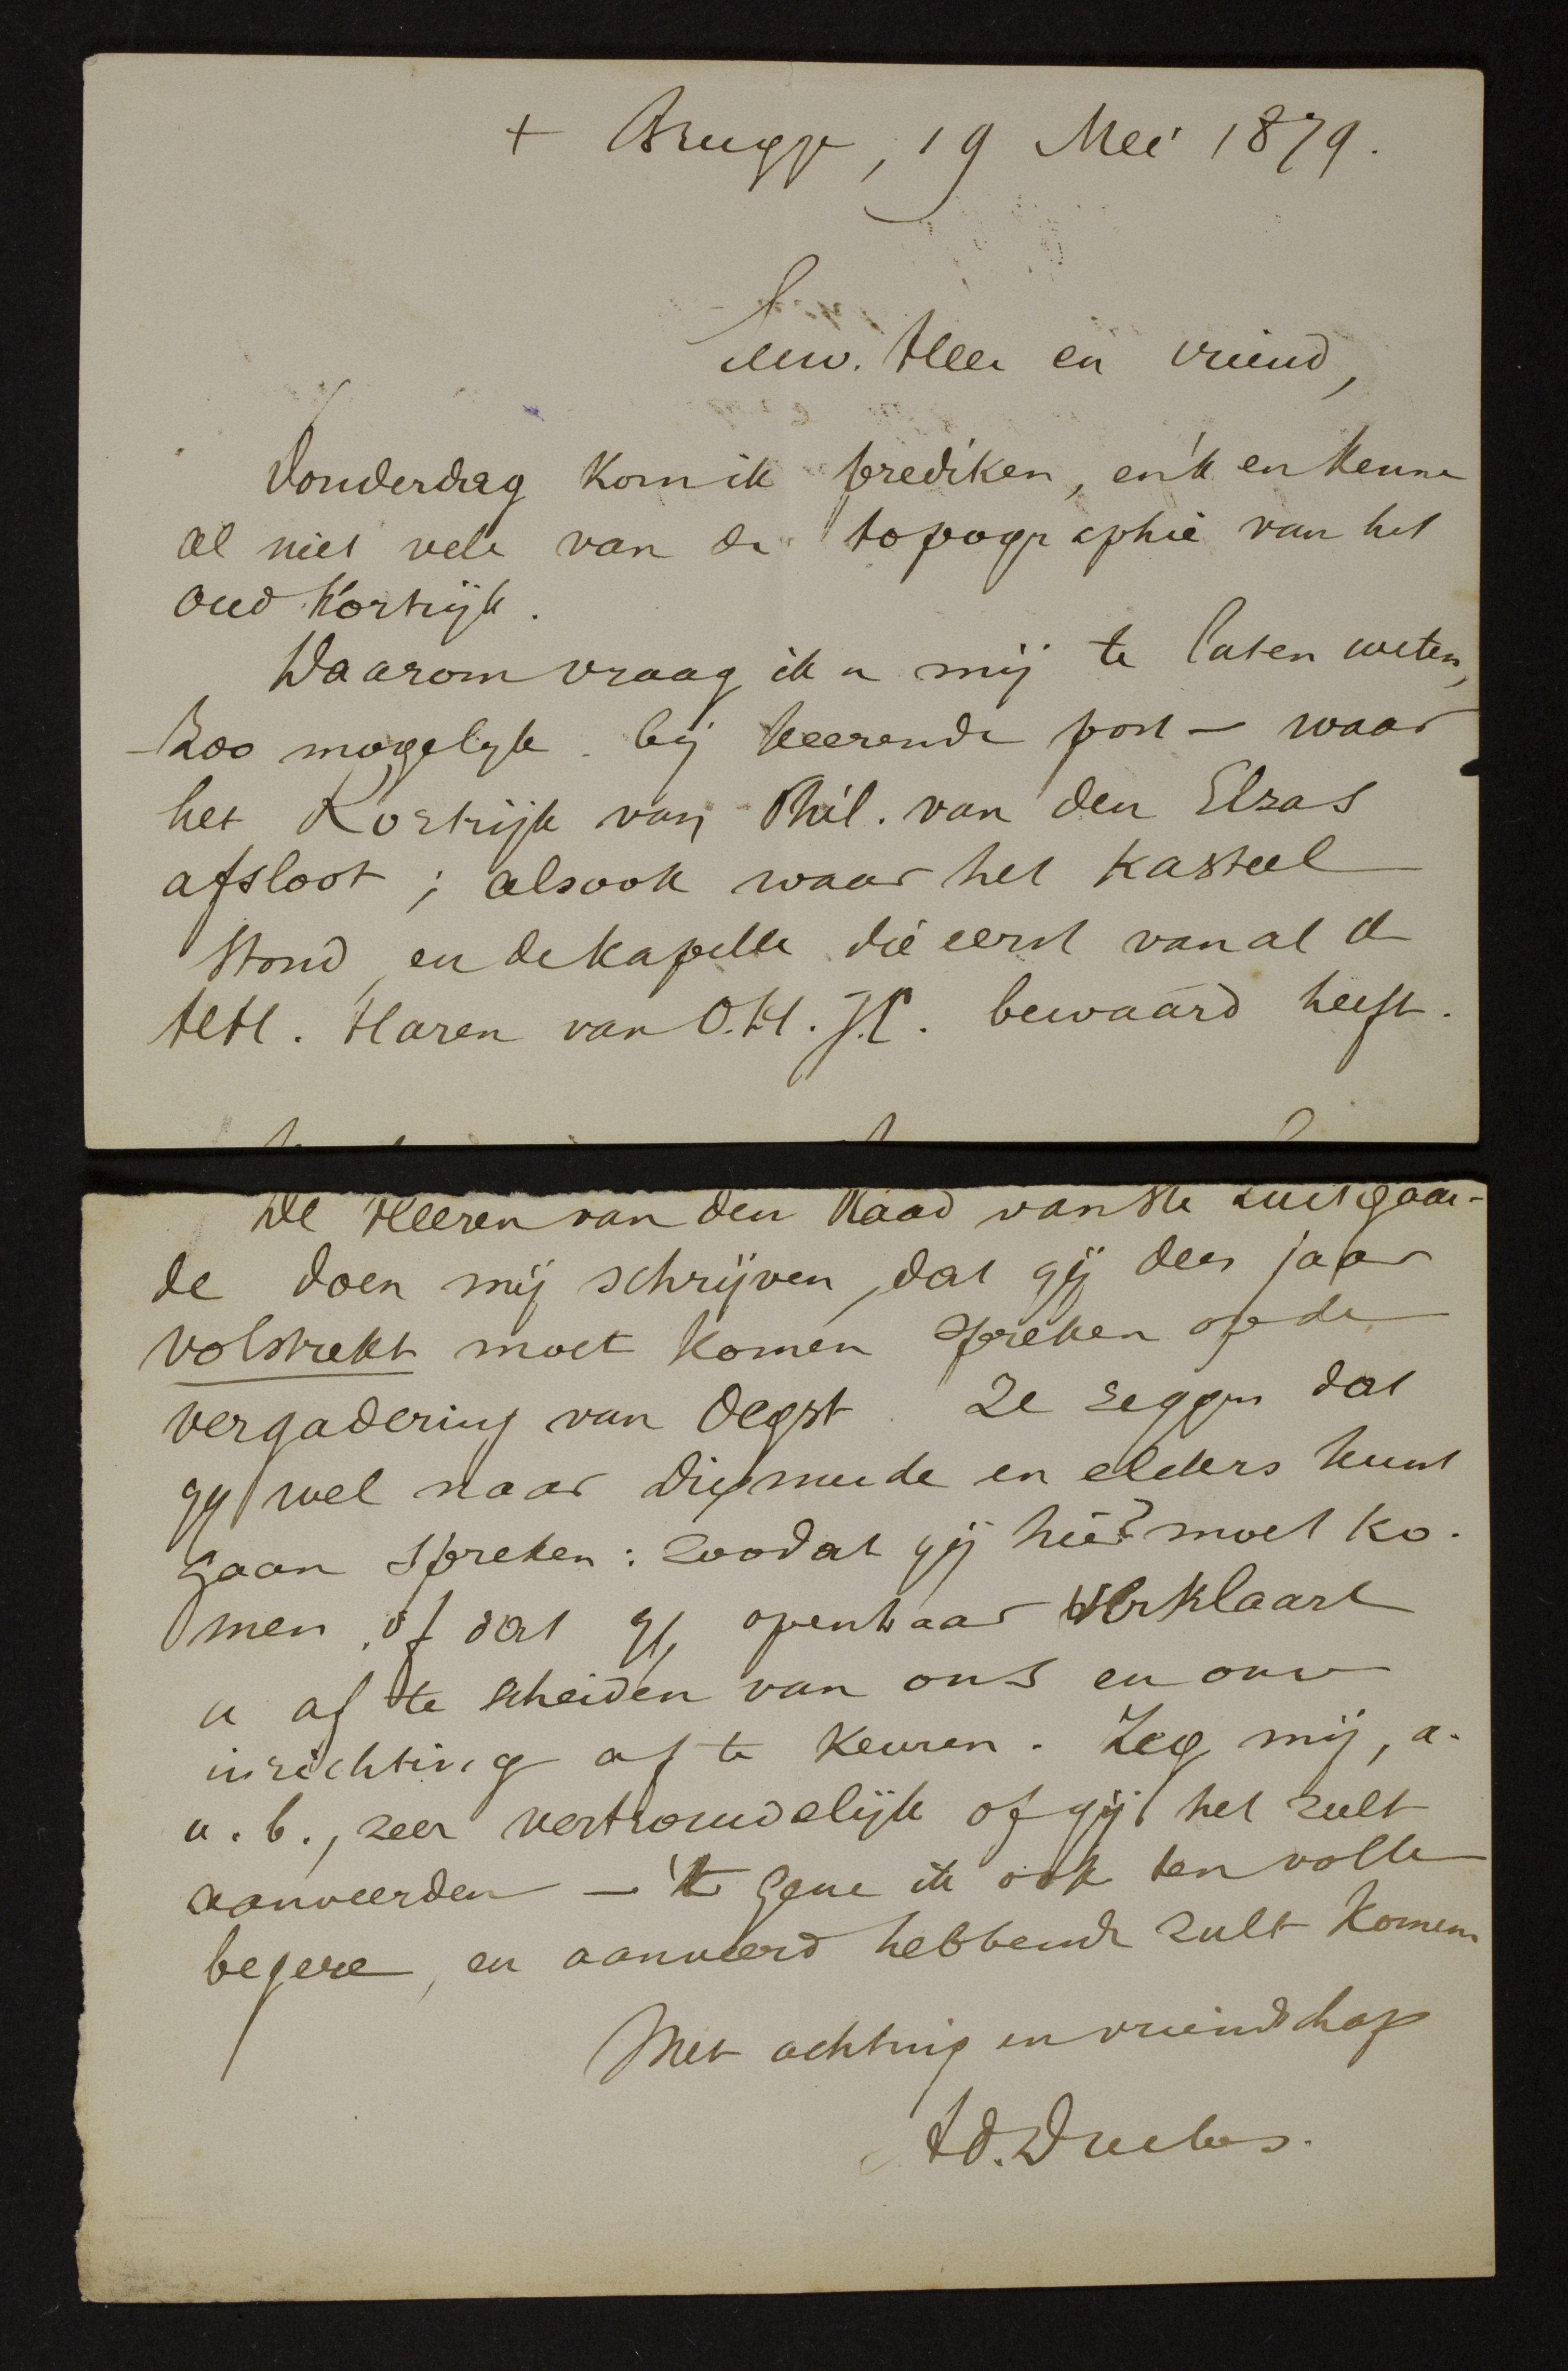 + Brugge, 19 Mei 1879.
Eerw. Heer en vriend,
Donderdag kom ik prediken, en 'k en kenne
al niet vele van de topographie van het
oud Kortrijk.
Waarom vraag ik u mij te laten weten,
- zoo mogelyk bij keerende post - waar
het Kortrijk van Phil. van den Elzas
afsloot ; alsook waar het kasteel
stond, en de kapelle die eerst van al de
HH. Haren van O.H.J.C. bewaard heeft.
De Heeren van den Raad van Ste Luitgaar-
de doen mij schrijven, dat gij dees jaar
volstrekt moet komen spreken op de
vergadering van Oegst. Ze zeggen dat
gy wel naar Dixmude en elders kunt
gaan spreken : zoodat gij hier moet ko-
men, of dat gy openbaar verklaart
u af te scheiden van ons en onze
inrichting af te keuren. Zeg mij, a.
u. b., zeer vertrouwelijk of gij het zult
aanveerden - 't gene ik ook ten volle
begere, en aanveerd hebbende zult komen
Met achting en vriendschap
Ad. Duclos.